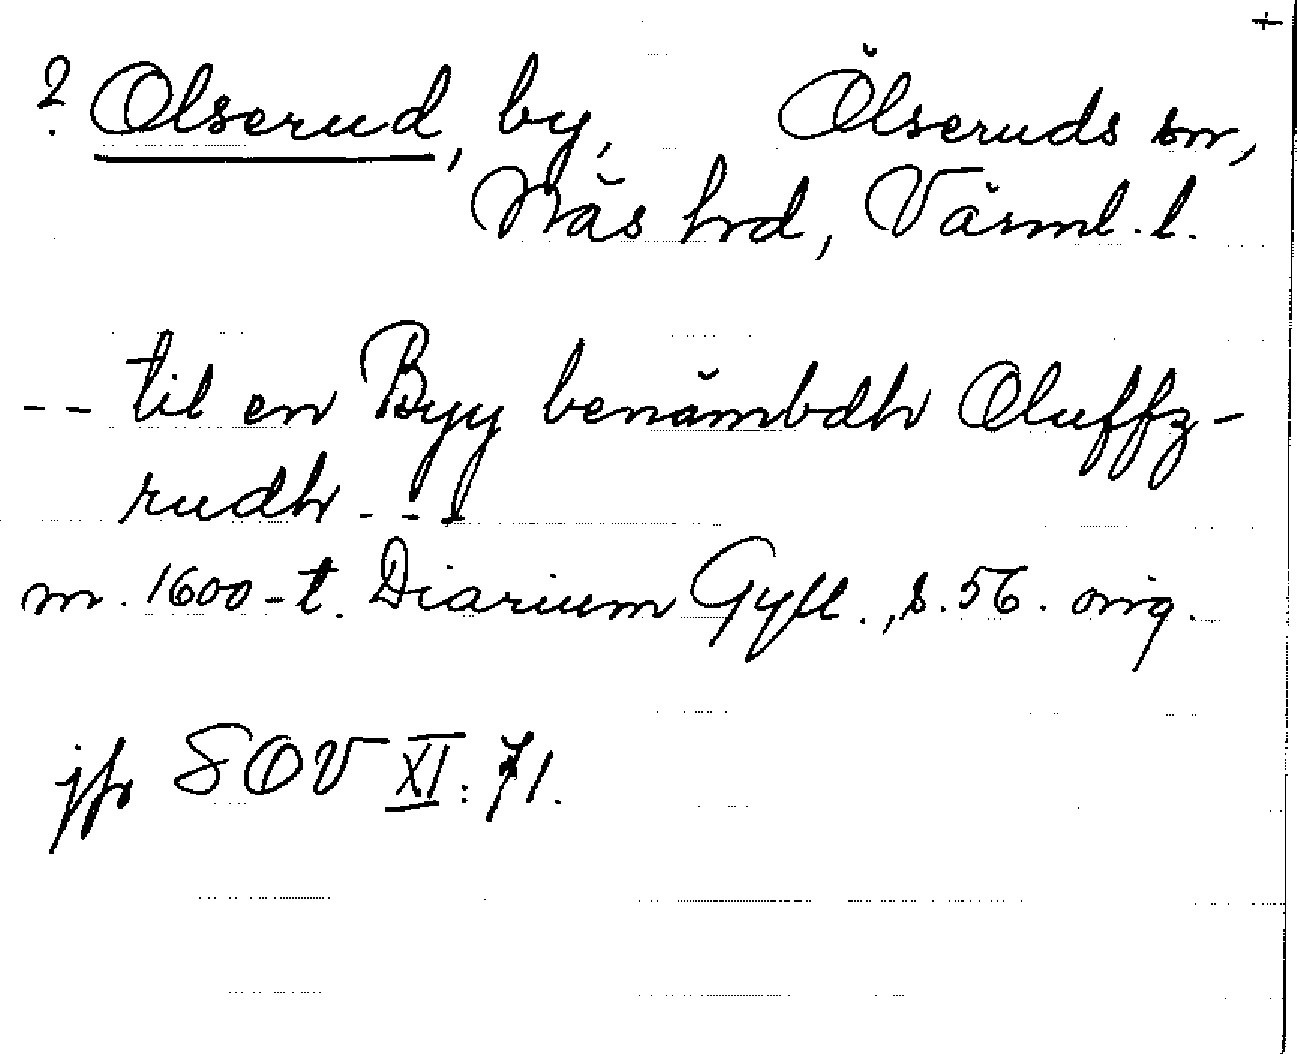 +
? Olserud, by, Ölseruds sn,
Näs hrd, Värml. l.
-- til en Byy benämbdh Oluffz-
rudh ---
m. 1600-t. Diarium Gyll., s. 56. orig.
jfr SOV XI: 71.